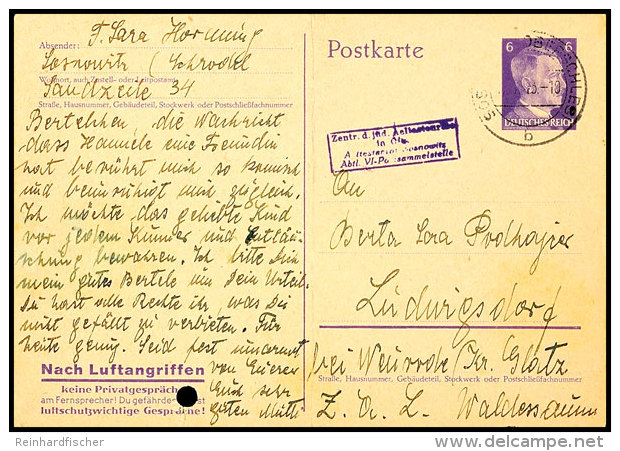 Absender: F. Sara Hornung
Sosnowitz / Schrodel
Wohnort, auch Zustell- oder Leitpostamt
34
Straße, Hausnummer, Gebäudeteil, Stockwerk oder Postschließfachnummer
Bertelchen, die Nachricht
dass Hannele eine Freundin
hat berührt mich so komisch
und beunruhigt mich zugleich.
Ich möchte das geliebte Kind
vor jedem Kummer und Enttäu-
schung bewahren. Ich bitte Dich
mein gutes Bertele um Dein Urteil.
Du hast alle Rechte ihr, was Dir
nicht gefällt zu verbieten. Für
heute genug. Seid fest umarmt
von Euerer
Euch sehr
guten Mutti
Nach Luftangriffen
keine Privatgespräche
am Fernsprecher! Du gefährdest
luftschutzwichtige Gespräche!
Postkarte
6 6
DEUTSCHES REICH
b
Zentr. d. jüd. Aeltestenräte
in
Aeltestenrat Sosnowitz
Abtl. VI-Postsammelstelle
An
Berta Sara Podhajcer
Ludwigsdorf
bei Neurode Kr. Glatz
Straße, Hausnummer, Gebäudeteil, Stockwerk oder Postschließfachnummer
Z. A. L.
Reinhardfischer
delcampe.net